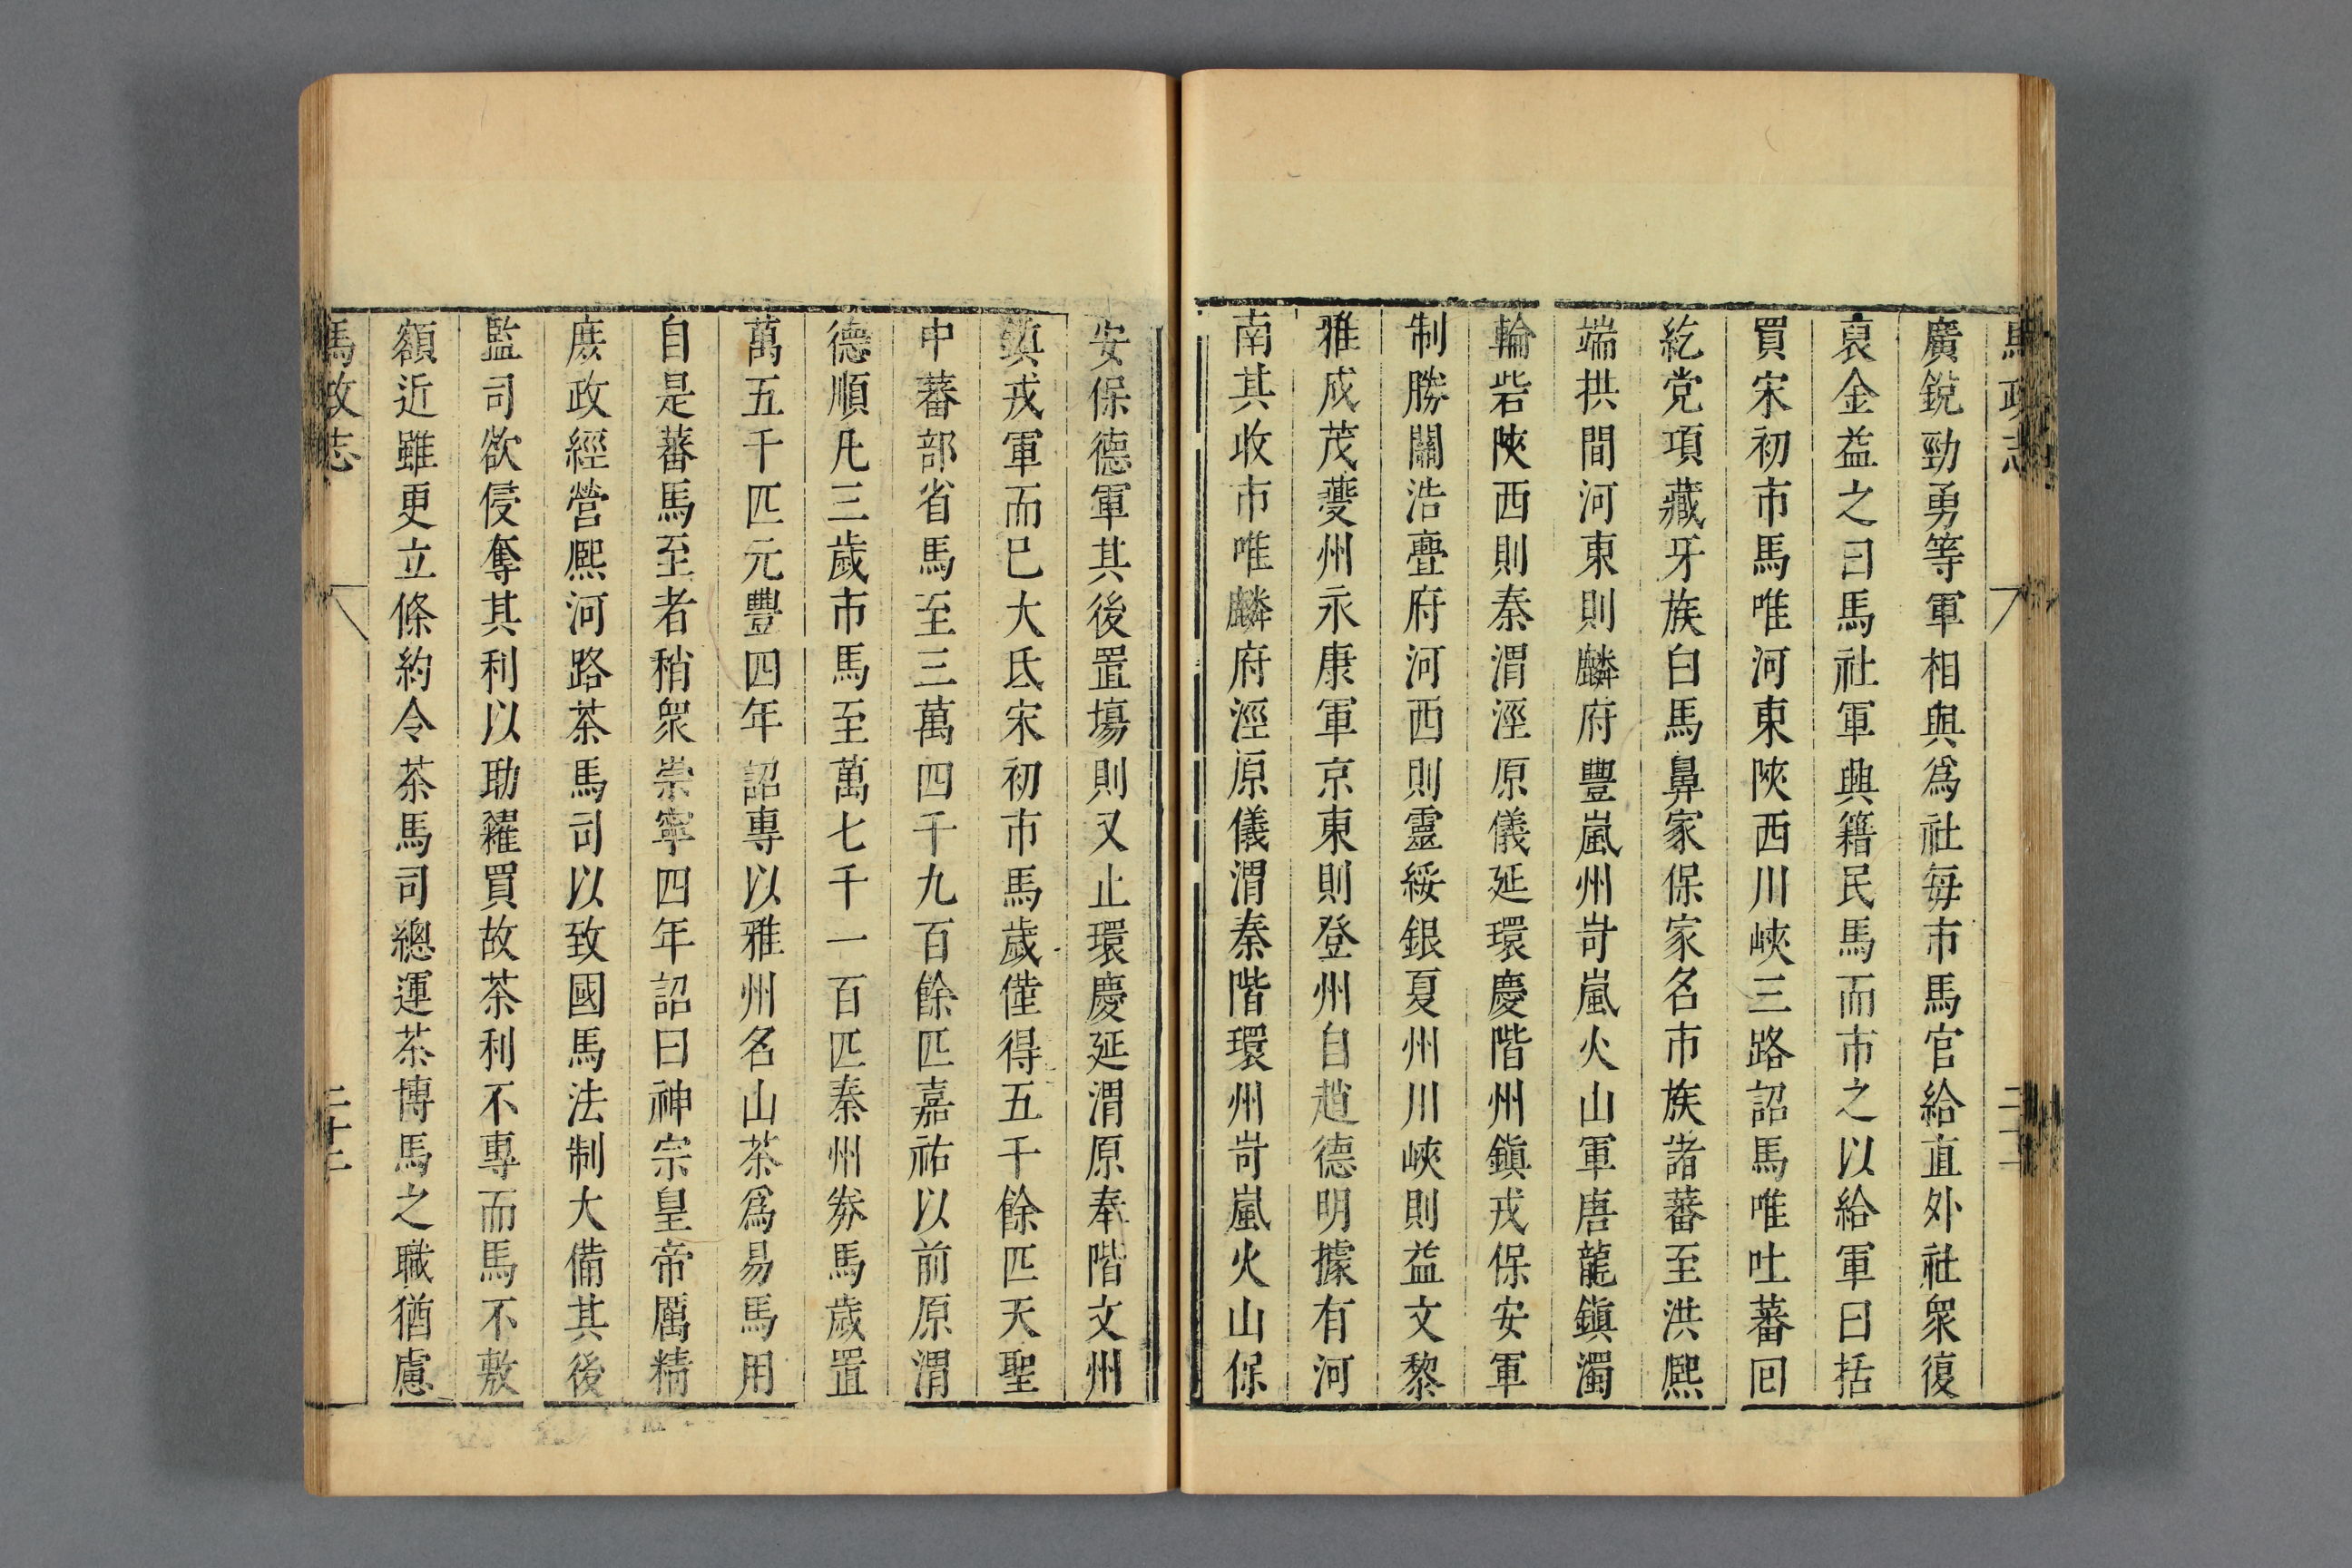 馬政志
廣銳勁勇等軍相與爲社每市馬官給直外社衆復
裒金益之曰馬社軍興籍民馬而市之以給軍曰括
買宋初市馬唯河東陝西川峽三路詔馬唯吐蕃回
紇党項藏牙族白馬鼻家保家名市族諸蕃至洪熙
端拱間河東則麟府豐嵐州岢嵐火山軍唐龍鎮濁
輪砦陝西則秦渭涇原儀延環慶階州鎮戎保安軍
制勝關浩亹府河西則靈綏銀夏州川峽則益文黎
雅成茂夔州永康軍京東則登州自趙德明據有河
南其收市唯麟府涇原儀渭秦階環州岢嵐火山保
安保德軍其後置場則又止環慶延渭原奉階文州
鎮戎軍而巳大氐宋初市馬歲僅得五千餘匹天聖
中蕃部省馬至三萬四千九百餘匹嘉祐以前原渭
德順凡三歲市馬至萬七千一百匹秦州劵馬歲置
萬五千匹元豐四年詔專以雅州名山茶爲易馬用
自是蕃馬至者稍衆崇寧四年詔曰神宗皇帝厲精
庶政經營熙河路茶馬司以致國馬法制大備其後
監司欲侵奪其利以助糴買故茶利不專而馬不敷
額近雖更立條約令茶馬司總運茶博馬之職猶慮
馬政志